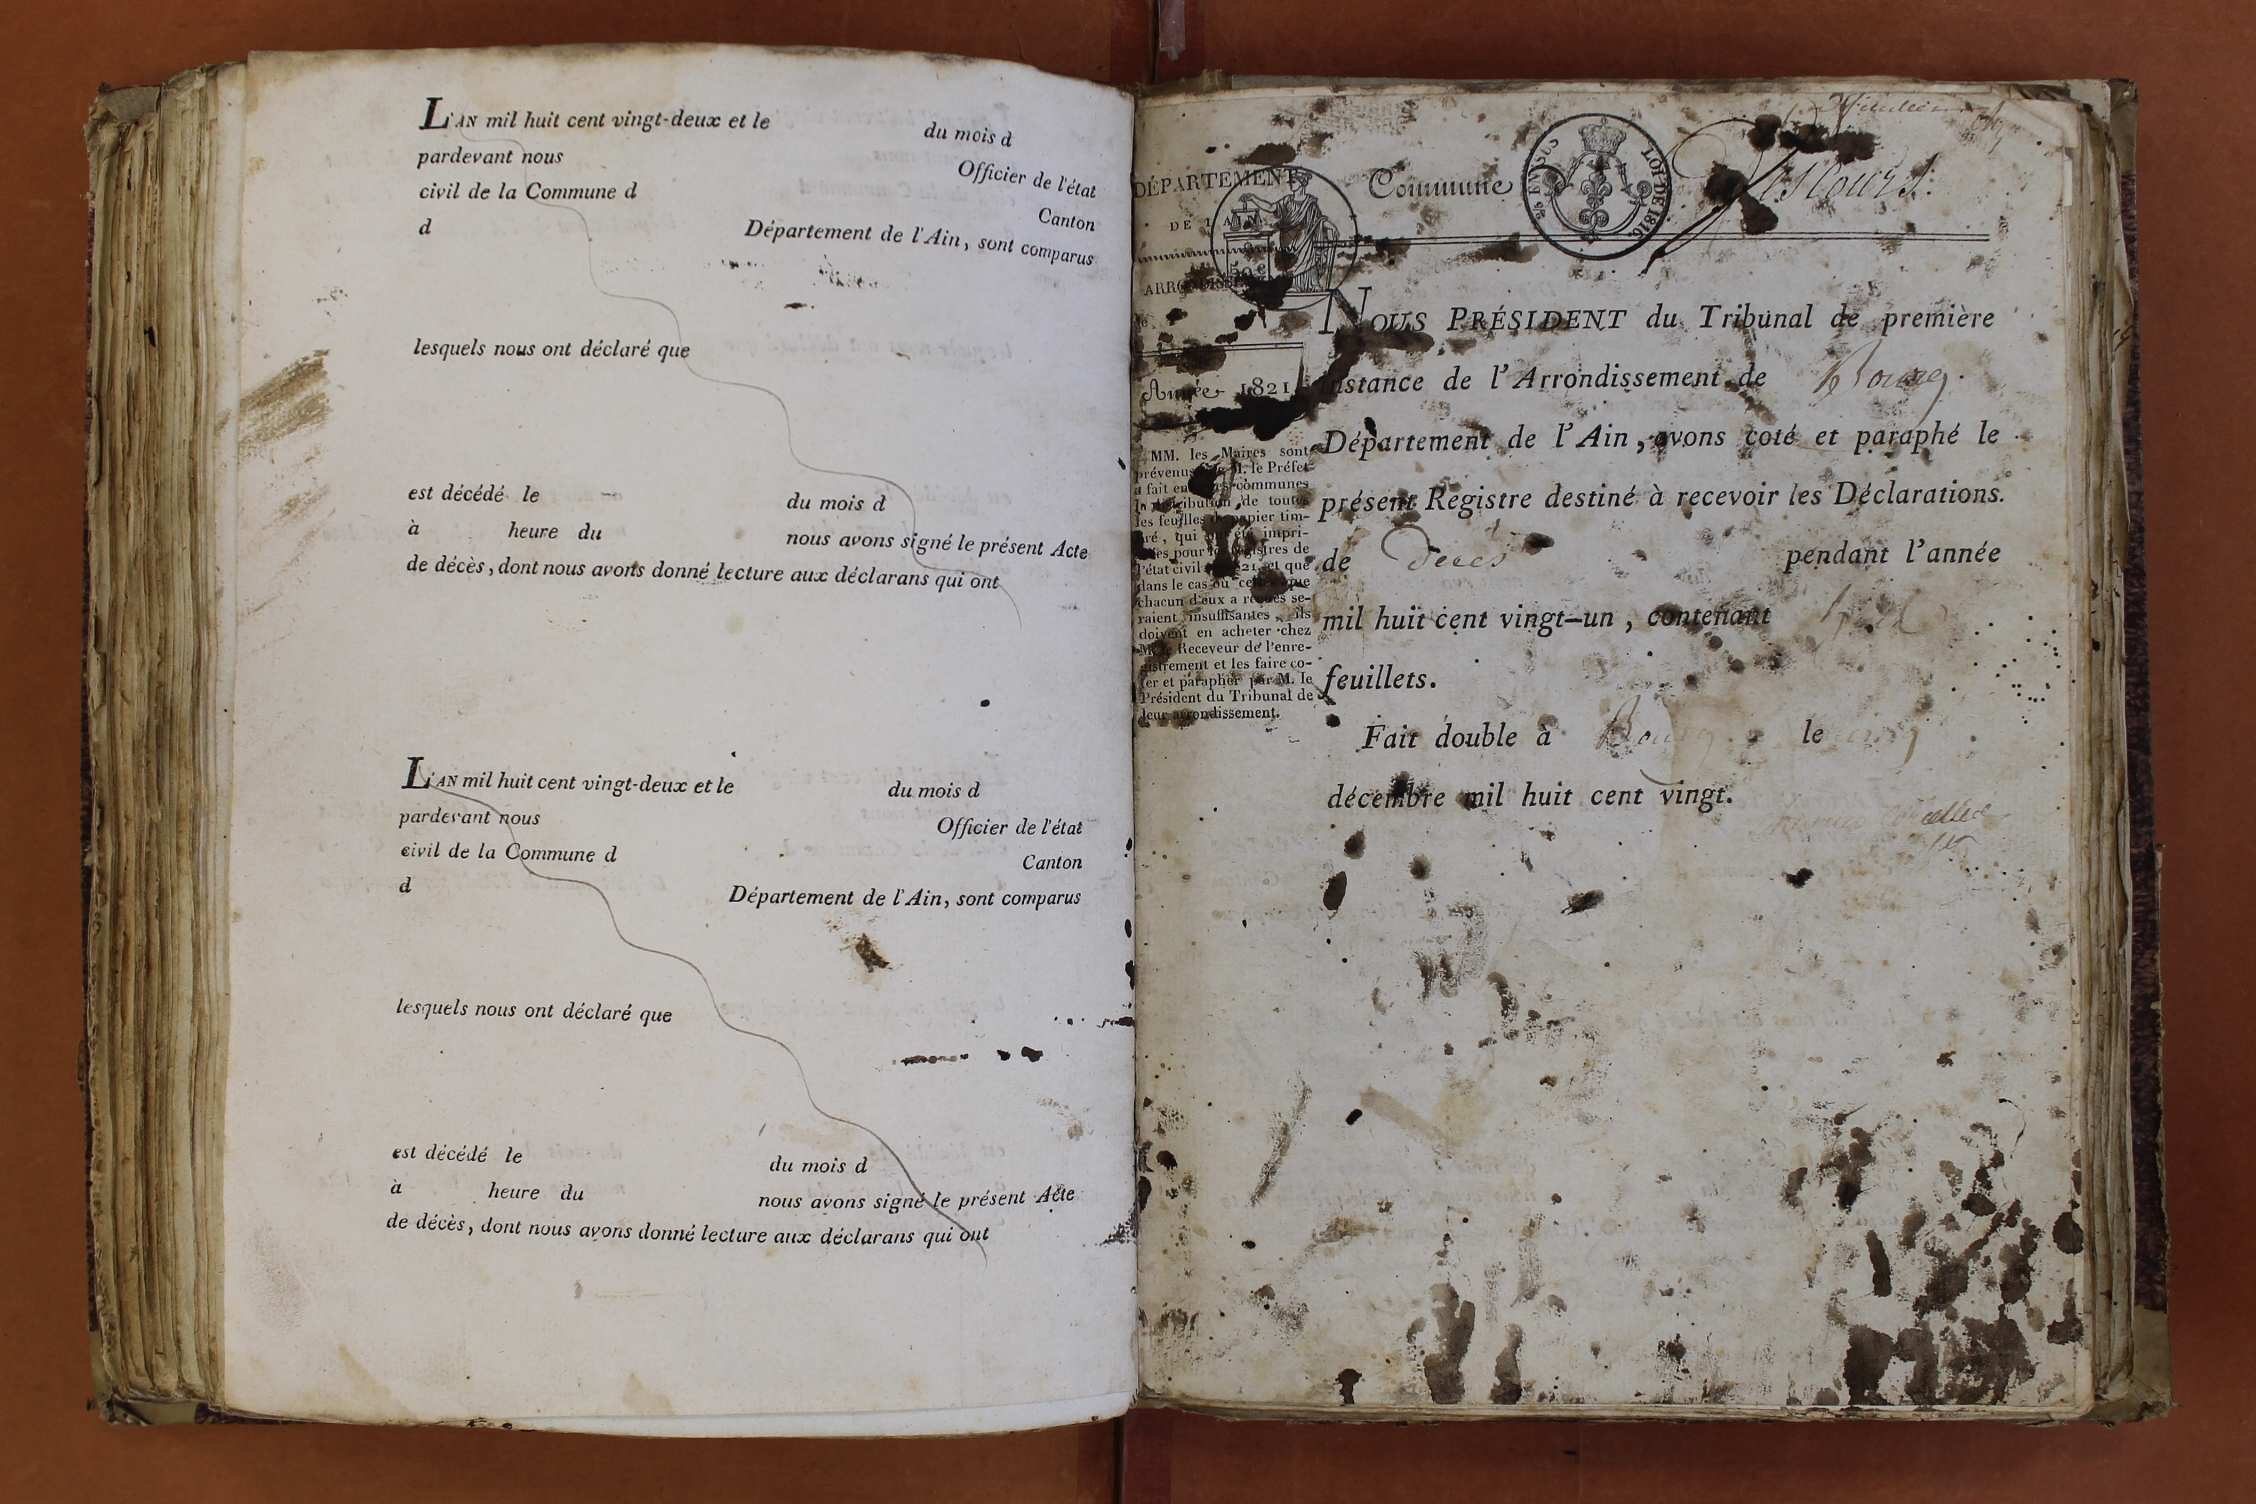 L'AN mil huit cent vingt-deux et le du mois d
pardevant nous Officier de l'état
civil de la Commune d Canton
d Département de l'Ain, sont comparus
lesquels nous ont déclaré que
est décédé le du mois d
à heure du nous avons signé le présent Acte
de décès, dont nous avons donné lecture aux déclarans qui ont
L'AN mil huit cent vingt-deux et le du mois d
pardevant nous Officier de l'état
civil de la Commune d Canton
d Département de l'Ain, sont comparus
lesquels nous ont déclaré que
est décédé le du mois d
à heure du nous avons signé le présent Acte
de décès, dont nous avons donné lecture aux déclarans qui ont
DÉPARTEMENT
DE L'AIN
ARRONDISSEMENT
Année 1821
MM. les Maires sont
prévenus M. le Préfet
a fait communes
distribution de toutes
les feuilles papier tim-
bré, qui ont été impri-
mées pour les registres de
l'état civil 1821, et que
dans le cas où celles que
chacun d'eux a reçues se-
raient insuffisantes, ils
doivent en acheter chez
M. le Receveur de l'enre-
gistrement et les faire co-
ter et parapher par M. le
Président du Tribunal de
leur arrondissement.
Commune
LOI DE 1816
NOUS PRÉSIDENT du Tribunal de première
instance de l'Arrondissement de Bourg.
Département de l'Ain, avons coté et paraphé le
présent Registre destiné à recevoir les Déclarations.
de Décès pendant l'année
mil huit cent vingt-un, contenant
feuillets.
Fait double à Bourg le cinq
décembre mil huit cent vingt.